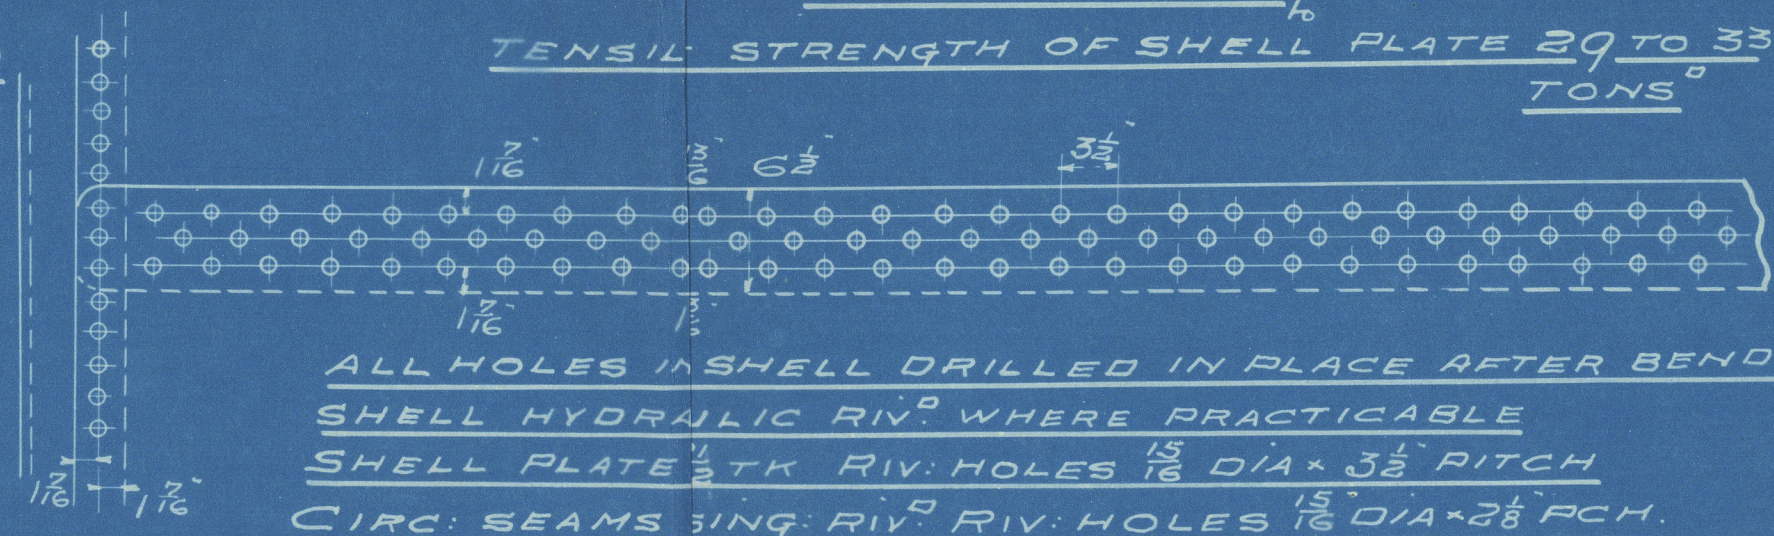 TENSIL STRENGTH OF SHELL PLATE 29 TO 33
TONS□"
3½"
1 7/16" 6½"
1 7/16"
ALL HOLES IN SHELL DRILLED IN PLACE AFTER BEND
SHELL HYDRAULIC RIVᴰ. WHERE PRACTICABLE
SHELL PLATE ½ TK RIV: HOLES 15/16 DIA × 3½" PITCH
1 7/16 1 7/16"
CIRC: SEAMS SING: RIVᴰ. RIV: HOLES 15/16" DIA × 2⅛" PCH.